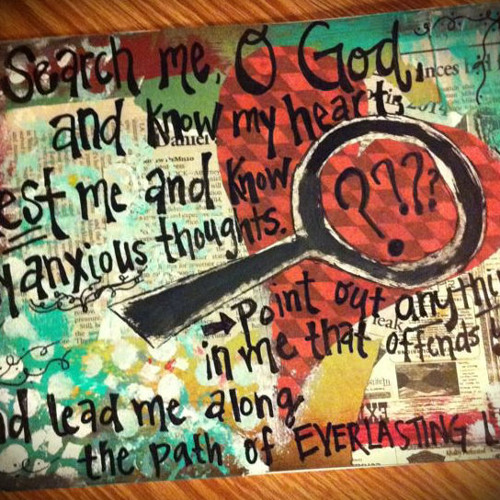 Search me, O God,
and know my heart,
est me and know
y anxious thoughts.
????
Point out anythi
in me that offends
nd lead me along
the path of EVERLASTING L
nces
Daniel
2014
reak